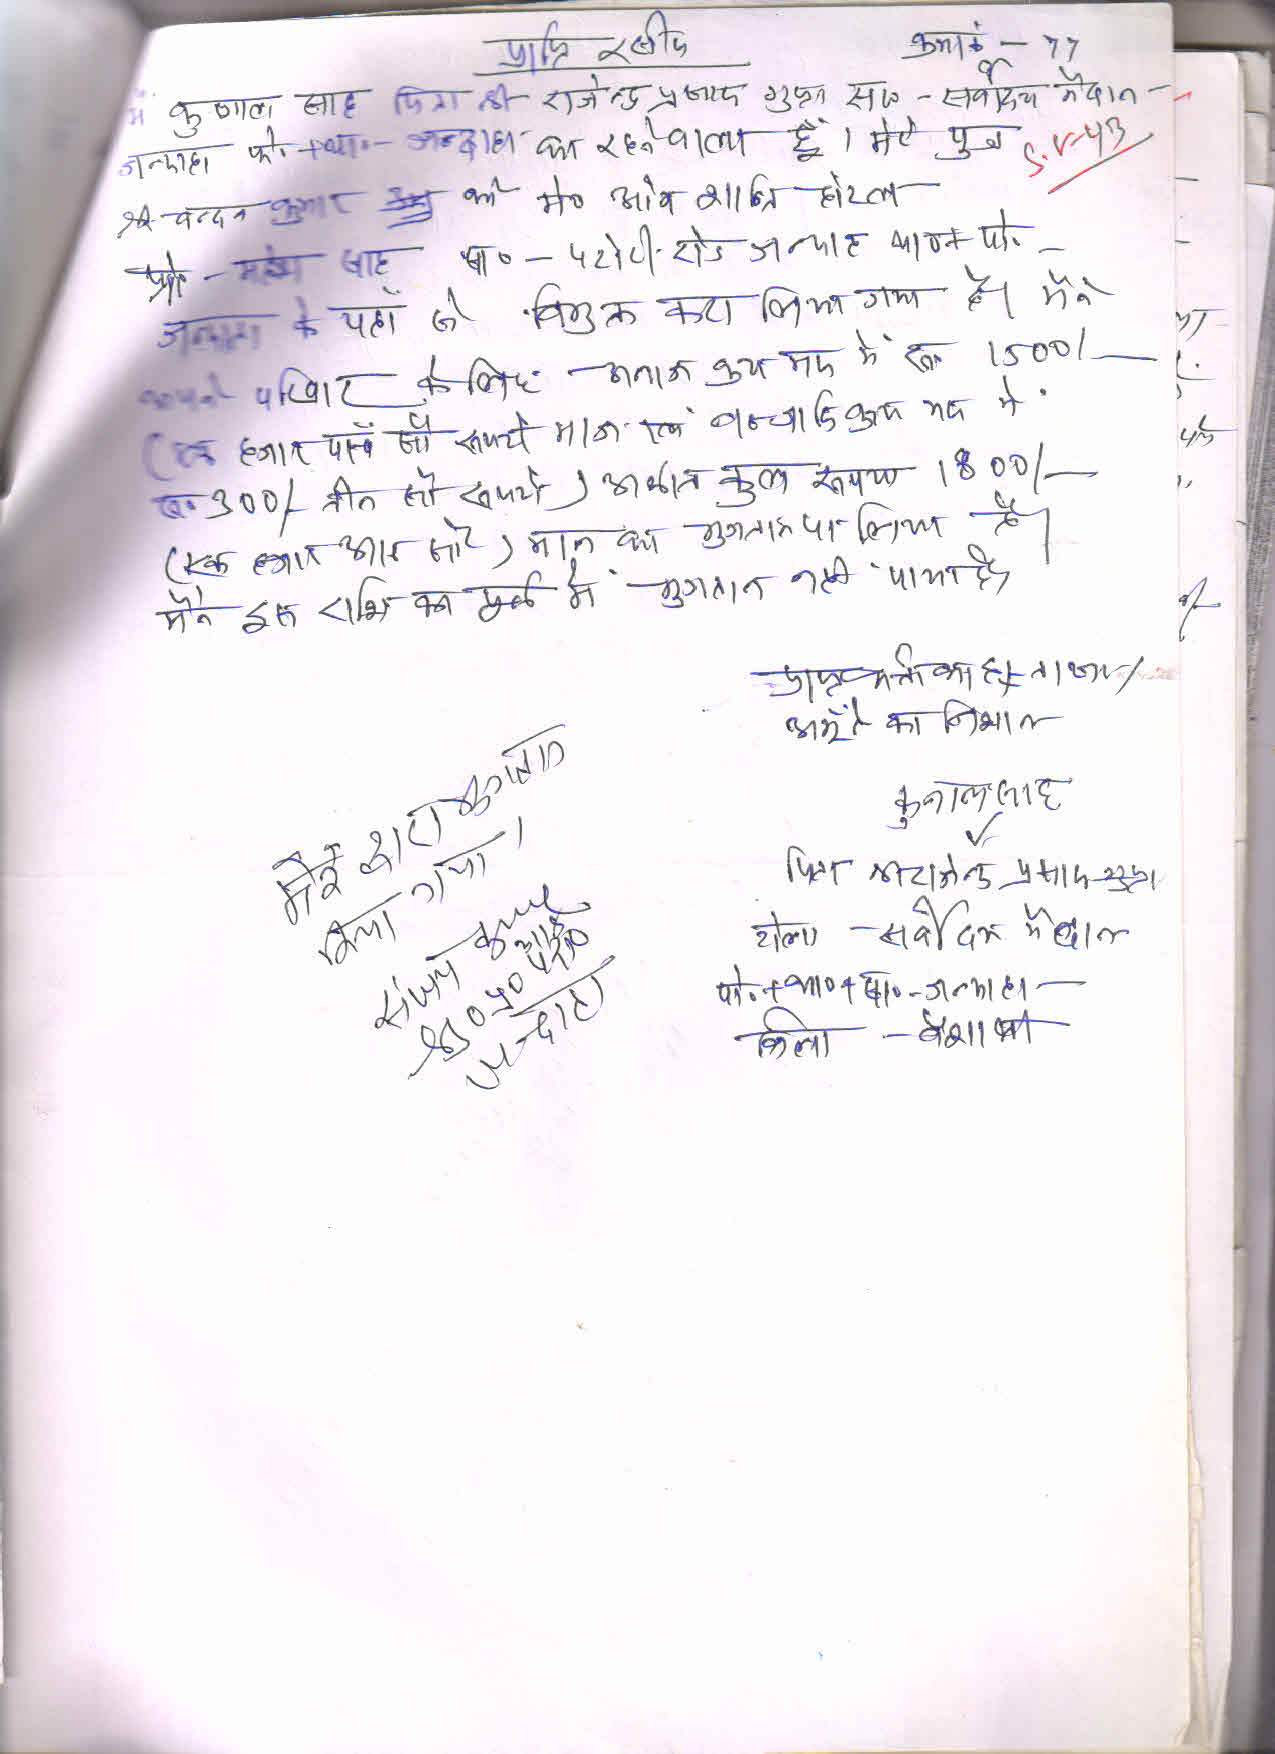 प्राप्ति रसीद
क्रमांक - 77
मैं कुणाल साह पिता श्री राजेन्द्र प्रसाद गुप्ता सा० - सर्वोदय मैदान -
जन्दाहा पो० + था० - जन्दाहा का रहनेवाला हूँ। मेरे पुत्र
S.V-43
श्री चन्दन कुमार को मे० ओम शान्ति होटल
प्रो० - महेश साह सा० - पटोरी रोड जन्दाहा था० + पो० -
जन्दाहा के यहाँ से विमुक्त करा लिया गया है। मैंने
अपने परिवार के लिए अनाज क्रय मद में रू० 1500/-
(एक हजार पाँच सौ रूपये) मात्र एवं वस्त्रादि क्रय मद में
रू० 300/- तीन सौ रूपये) अर्थात कुल रूपया 1800/-
(एक हजार आठ सौ रू) मात्र का भुगतान पा लिया है।
मैंने इस राशि का पूर्व में भुगतान नहीं पाया है।
प्राप्तकर्ता का हस्ताक्षर/
अंगूठे का निशान
कुनाल साह
पिता श्री राजेन्द्र प्रसाद गुप्ता
टोला - सर्वोदय मैदान
पो० + था० + सा० - जन्दाहा
जिला - वैशाली
मेरे द्वारा भुगतान
किया गया।
संजय कुमार
जन्दाहा